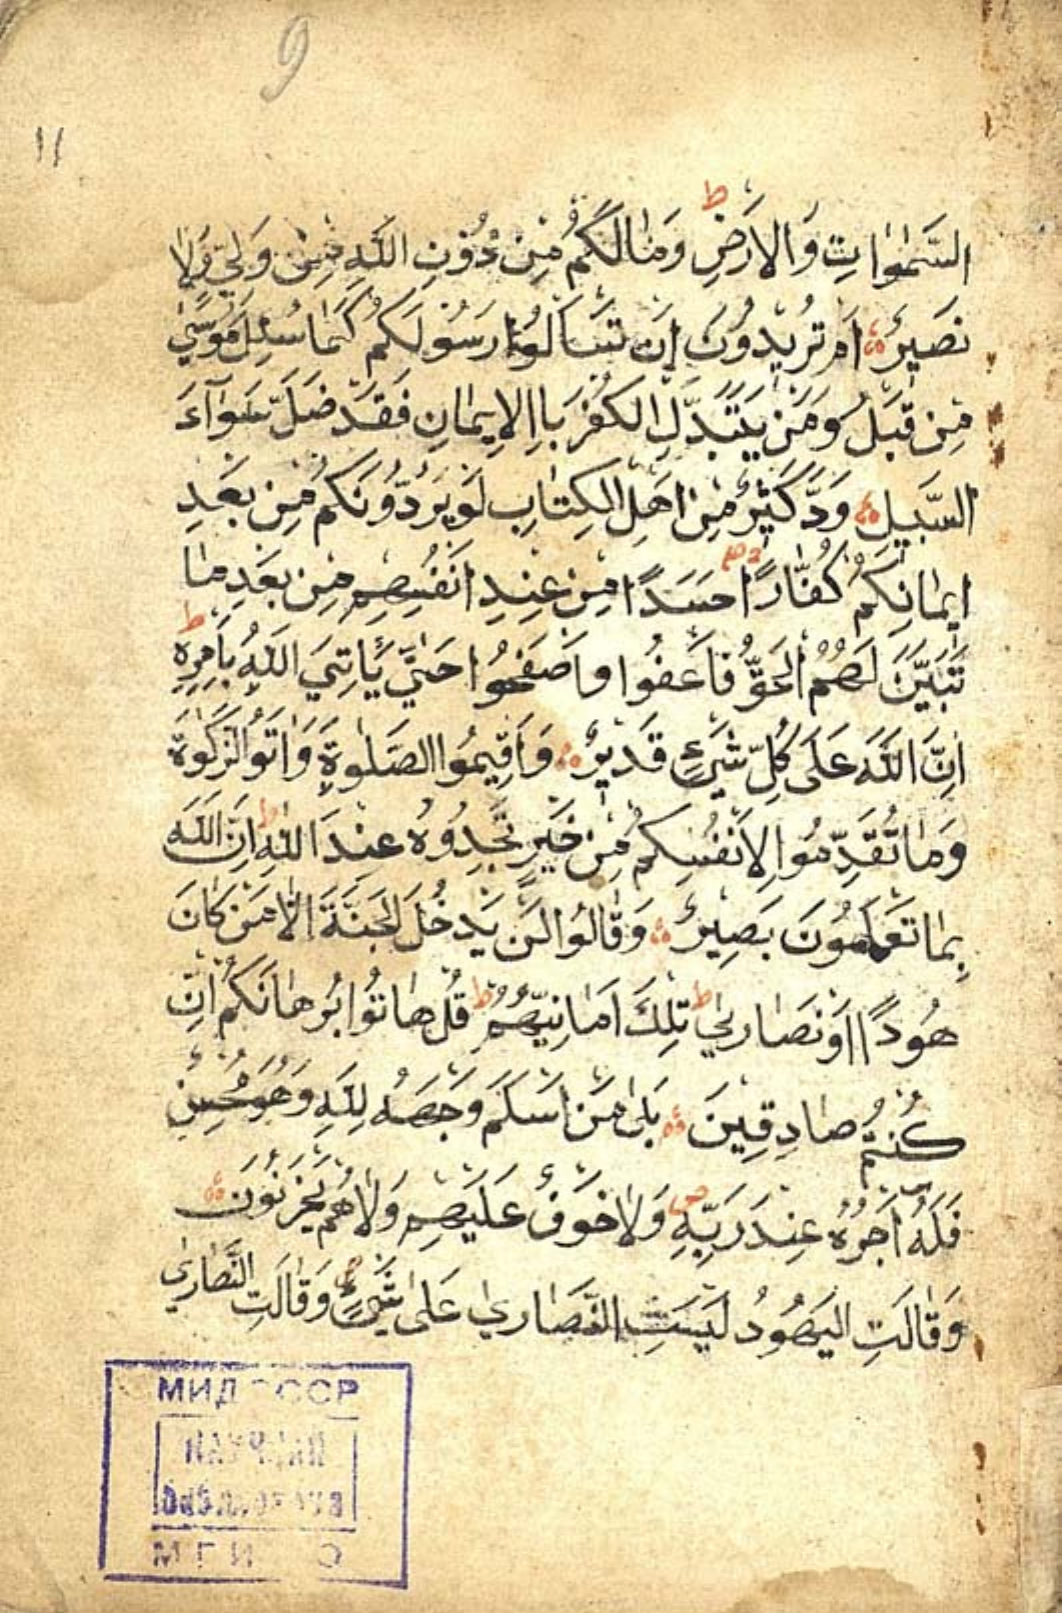 9
١١
السَّمٰوٰاتِ وَالاَرَضِ ط وَمٰالَكُمُ مِنِ دُوُنِ اللَهِ مِنِ وَلِيٍّ وَلٰا
نَصَيرٍ اَمَ تُرُيدُوُنَ اِنَ تَسَأَلوُا رَسُوُلَكُمُ كَمٰا سُئِلَ مُوُسىٰ
مِنِ قَبَلُ وَمَنَ يَتَبَدَّلِ الكُفُرَ بااِلايمٰانِ فَقَدَ ضَلَّ سَوٰآءَ
السَّبيلِ وَدَّ كَثيرٌ مِنِ اَهَلِ الكِتٰابِ لَوَ يَرُدّوُنَكُمُ مِنِ بَعَدِ
ايمٰانِكُمُ كُفّٰارًا حَسَدًا مِنِ عِنِدِ اَنَفُسِهِمِ مِنِ بَعَدِ مٰا
تَبَيَّنَ لَهُمُ الحَقُّ فَاَعَفُوا وَاَصَفَحُوا حَتّىٰ يَأتِيَ اللَهُ بِاَمِرِهِ ط
اِنَّ اللَهَ عَلىٰ كُلِّ شَيَءٍ قَديرٌ وَاَقيمُوا الصَلٰوةَ وَاٰتَوُا الزَكٰوةَ
وَمٰا تُقَدِّمُوا لِاَنَفُسِكُمُ مِنِ خَيَرٍ تَجِدُوُهُ عِنِدَ اللهِ ط اِنَّ اللَهَ
بِمٰا تَعَمَلُونَ بَصيرٌ وَقٰالُوا لَنَ يَدَخُلَ الجَنَّةَ اِلّٰا مَنَ كٰانَ
هُودًا اَوَ نَصٰارىٰ ط تِلِكَ اَمٰانِيُّهُمُ ط قُلُ هٰاتُوا بُرُهٰانَكُمُ اِنِ
كُنُتُمُ صٰادِقينَ بَلىٰ مَنَ اَسَلَمَ وَجَهَهُ لِلَهِ وَهُوَ مُحُسِنٌ
فَلَهُ اَجَرُهُ عِنِدَ رَبِّهِ ص وَلٰا خَوَفٌ عَلَيَهِمِ وَلٰا هُمُ يَحَزَنُونَ
وَقٰالَتِ اليَهُودُ لَيَسَتِ النَّصٰارىٰ عَلىٰ شَيَءٍ ص وَقٰالَتِ النَّصٰارىٰ
МИД СССР
НАУЧНАЯ
БИБЛИОТЕКА
МГИ О